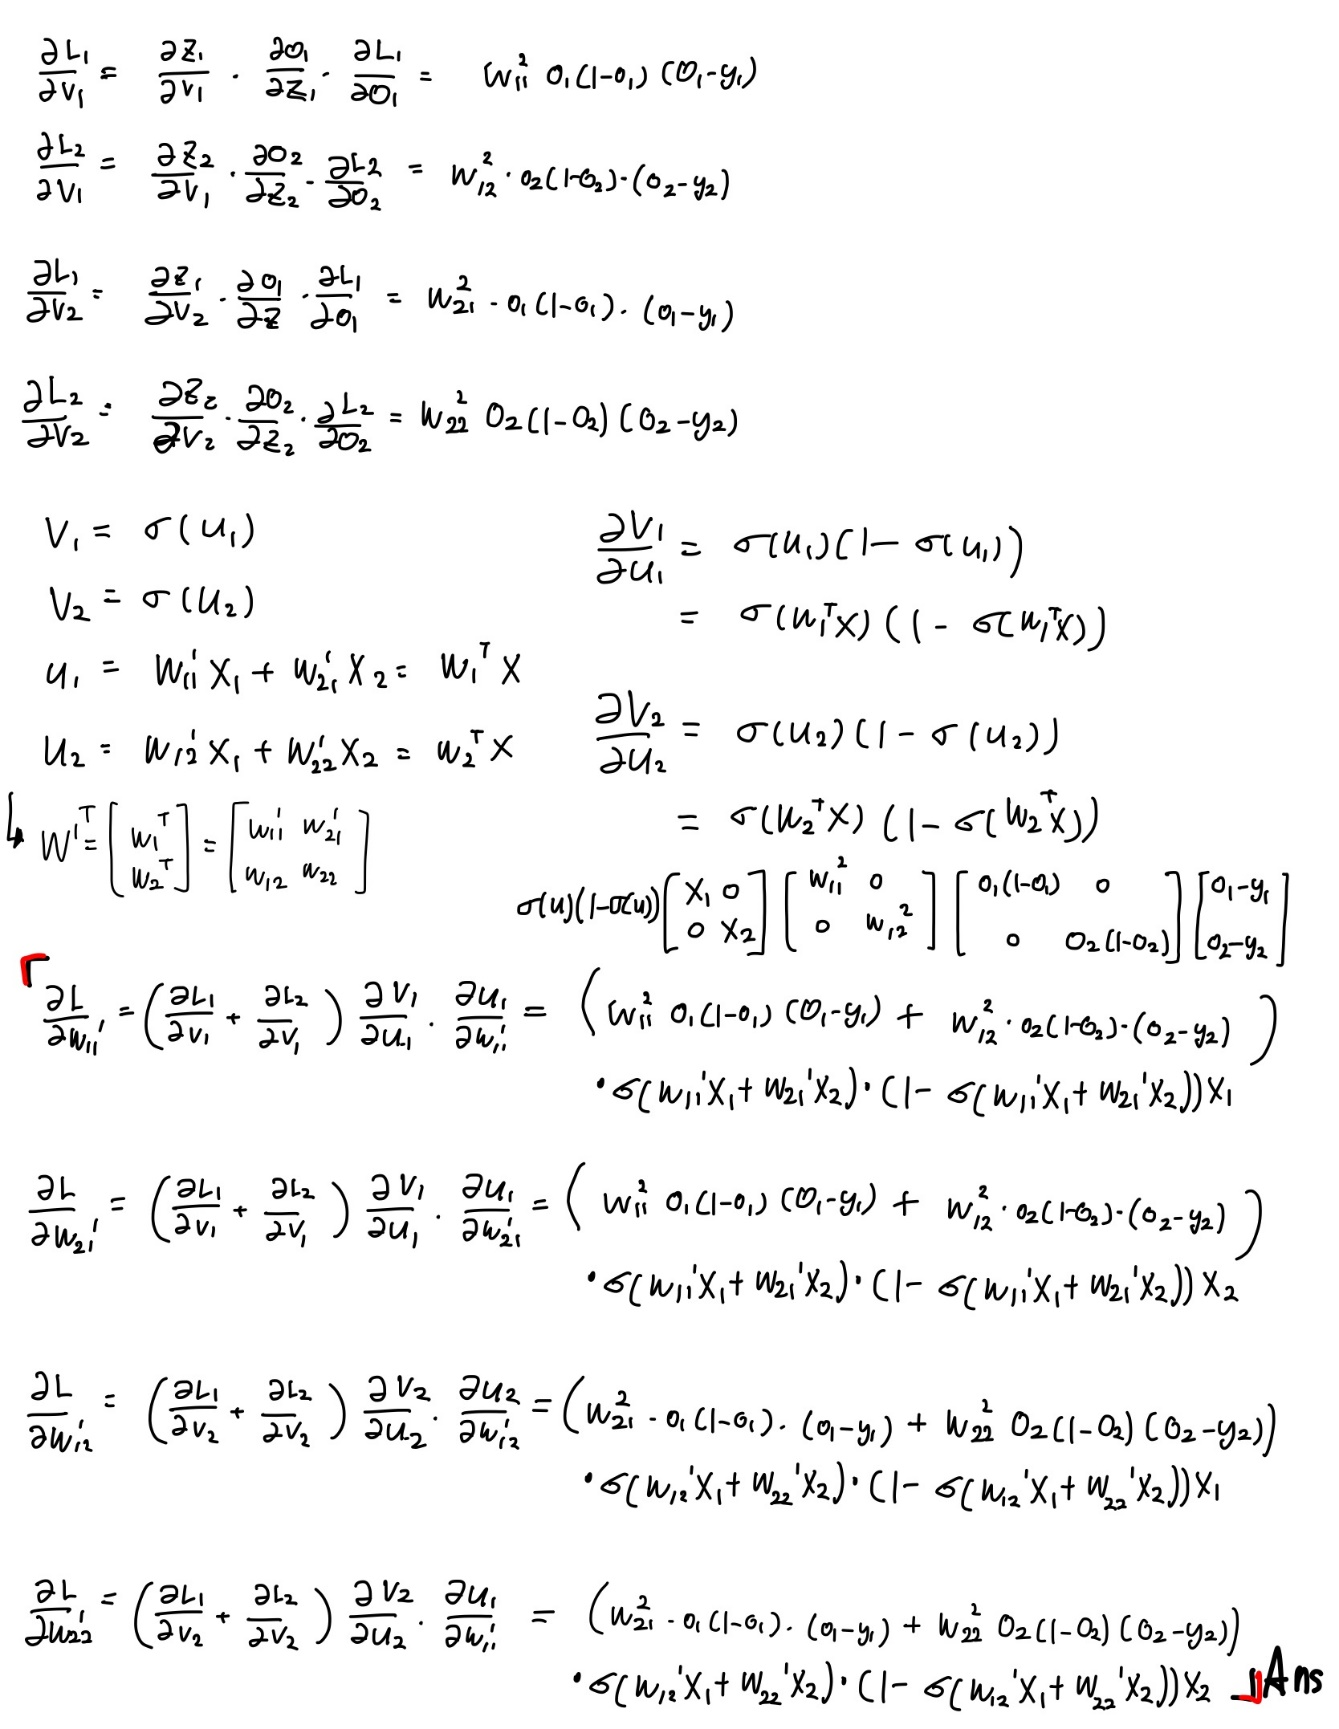 ∂L₁/∂v₁ = ∂z₁/∂v₁ · ∂o₁/∂z₁ · ∂L₁/∂o₁ = w₁₁² o₁(1-o₁) (o₁-y₁)
∂L₂/∂v₁ = ∂z₂/∂v₁ · ∂o₂/∂z₂ · ∂L₂/∂o₂ = w₁₂² · o₂(1-o₂)·(o₂-y₂)
∂L₁/∂v₂ = ∂z₁/∂v₂ · ∂o₁/∂z · ∂L₁/∂o₁ = w₂₁² · o₁(1-o₁) · (o₁-y₁)
∂L₂/∂v₂ = ∂z₂/∂v₂ · ∂o₂/∂z₂ · ∂L₂/∂o₂ = w₂₂² o₂(1-o₂) (o₂-y₂)
v₁ = σ(u₁)
∂v₁/∂u₁ = σ(u₁)(1-σ(u₁))
v₂ = σ(u₂)
= σ(w₁ᵀx)(1-σ(w₁ᵀx))
u₁ = w₁₁'x₁ + w₂₁'x₂ = w₁ᵀx
∂v₂/∂u₂ = σ(u₂)(1-σ(u₂))
u₂ = w₁₂'x₁ + w₂₂'x₂ = w₂ᵀx
= σ(w₂ᵀx)(1-σ(w₂ᵀx))
↳ W'ᵀ = [w₁ᵀ; w₂ᵀ] = [w₁₁' w₂₁'; w₁₂ w₂₂]
σ(u)(1-σ(u)) [x₁ 0; 0 x₂] [w₁₁² 0; 0 w₁₂²] [o₁(1-o₁) 0; 0 o₂(1-o₂)] [o₁-y₁; o₂-y₂]
∂L/∂w₁₁' = (∂L₁/∂v₁ + ∂L₂/∂v₁) ∂v₁/∂u₁ · ∂u₁/∂w₁₁' = (w₁₁² o₁(1-o₁) (o₁-y₁) + w₁₂² · o₂(1-o₂)·(o₂-y₂))
·σ(w₁₁'x₁ + w₂₁'x₂)·(1-σ(w₁₁'x₁ + w₂₁'x₂))x₁
∂L/∂w₂₁' = (∂L₁/∂v₁ + ∂L₂/∂v₁) ∂v₁/∂u₁ · ∂u₁/∂w₂₁' = (w₁₁² o₁(1-o₁) (o₁-y₁) + w₁₂² · o₂(1-o₂)·(o₂-y₂))
·σ(w₁₁'x₁ + w₂₁'x₂)·(1-σ(w₁₁'x₁ + w₂₁'x₂))x₂
∂L/∂w₁₂' = (∂L₁/∂v₂ + ∂L₂/∂v₂) ∂v₂/∂u₂ · ∂u₂/∂w₁₂' = (w₂₁² · o₁(1-o₁) · (o₁-y₁) + w₂₂² o₂(1-o₂) (o₂-y₂))
·σ(w₁₂'x₁ + w₂₂'x₂)·(1-σ(w₁₂'x₁ + w₂₂'x₂))x₁
∂L/∂w₂₂' = (∂L₁/∂v₂ + ∂L₂/∂v₂) ∂v₂/∂u₂ · ∂u₁/∂w₁₁' = (w₂₁² · o₁(1-o₁) · (o₁-y₁) + w₂₂² o₂(1-o₂) (o₂-y₂))
·σ(w₁₂'x₁ + w₂₂'x₂)·(1-σ(w₁₂'x₁ + w₂₂'x₂))x₂ Ans